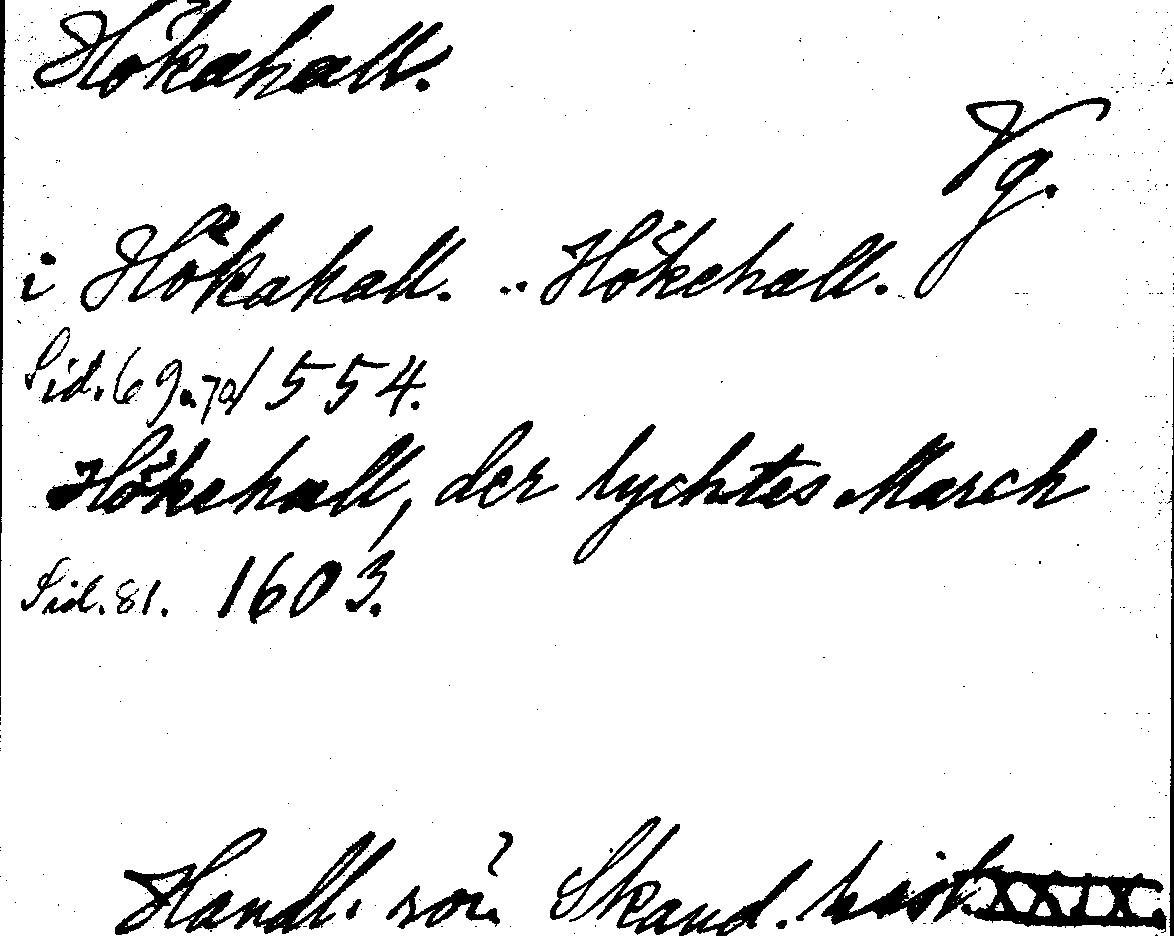 Hökahall.
Vg.
i Hökahall. .. Hökehall.
Sid. 69 o. 70/ 1554.
Hökehall, der lychtes March
Sid. 81. 1603.
Handl. rör. Skand. hist. XXIX.